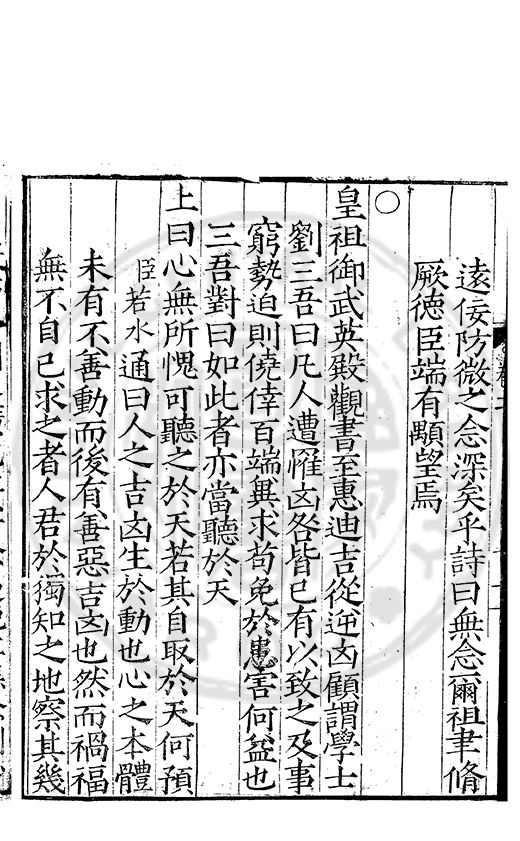 遠佞防微之念深矣乎詩曰無念爾祖聿脩
厥德臣端有顒望焉
〇
皇祖御武英殿觀書至惠迪吉從逆凶顧謂學士
劉三吾曰凡人遭罹凶咎皆己有以致之及事
窮勢迫則僥倖百端兾求苟免於患害何益也
三吾對曰如此者亦當聽於天
上曰心無所愧可聽之於天若其自取於天何預
臣若水通曰人之吉凶生於動也心之本體
未有不善動而後有善惡吉凶也然而禍福
無不自己求之者人君於獨知之地察其幾